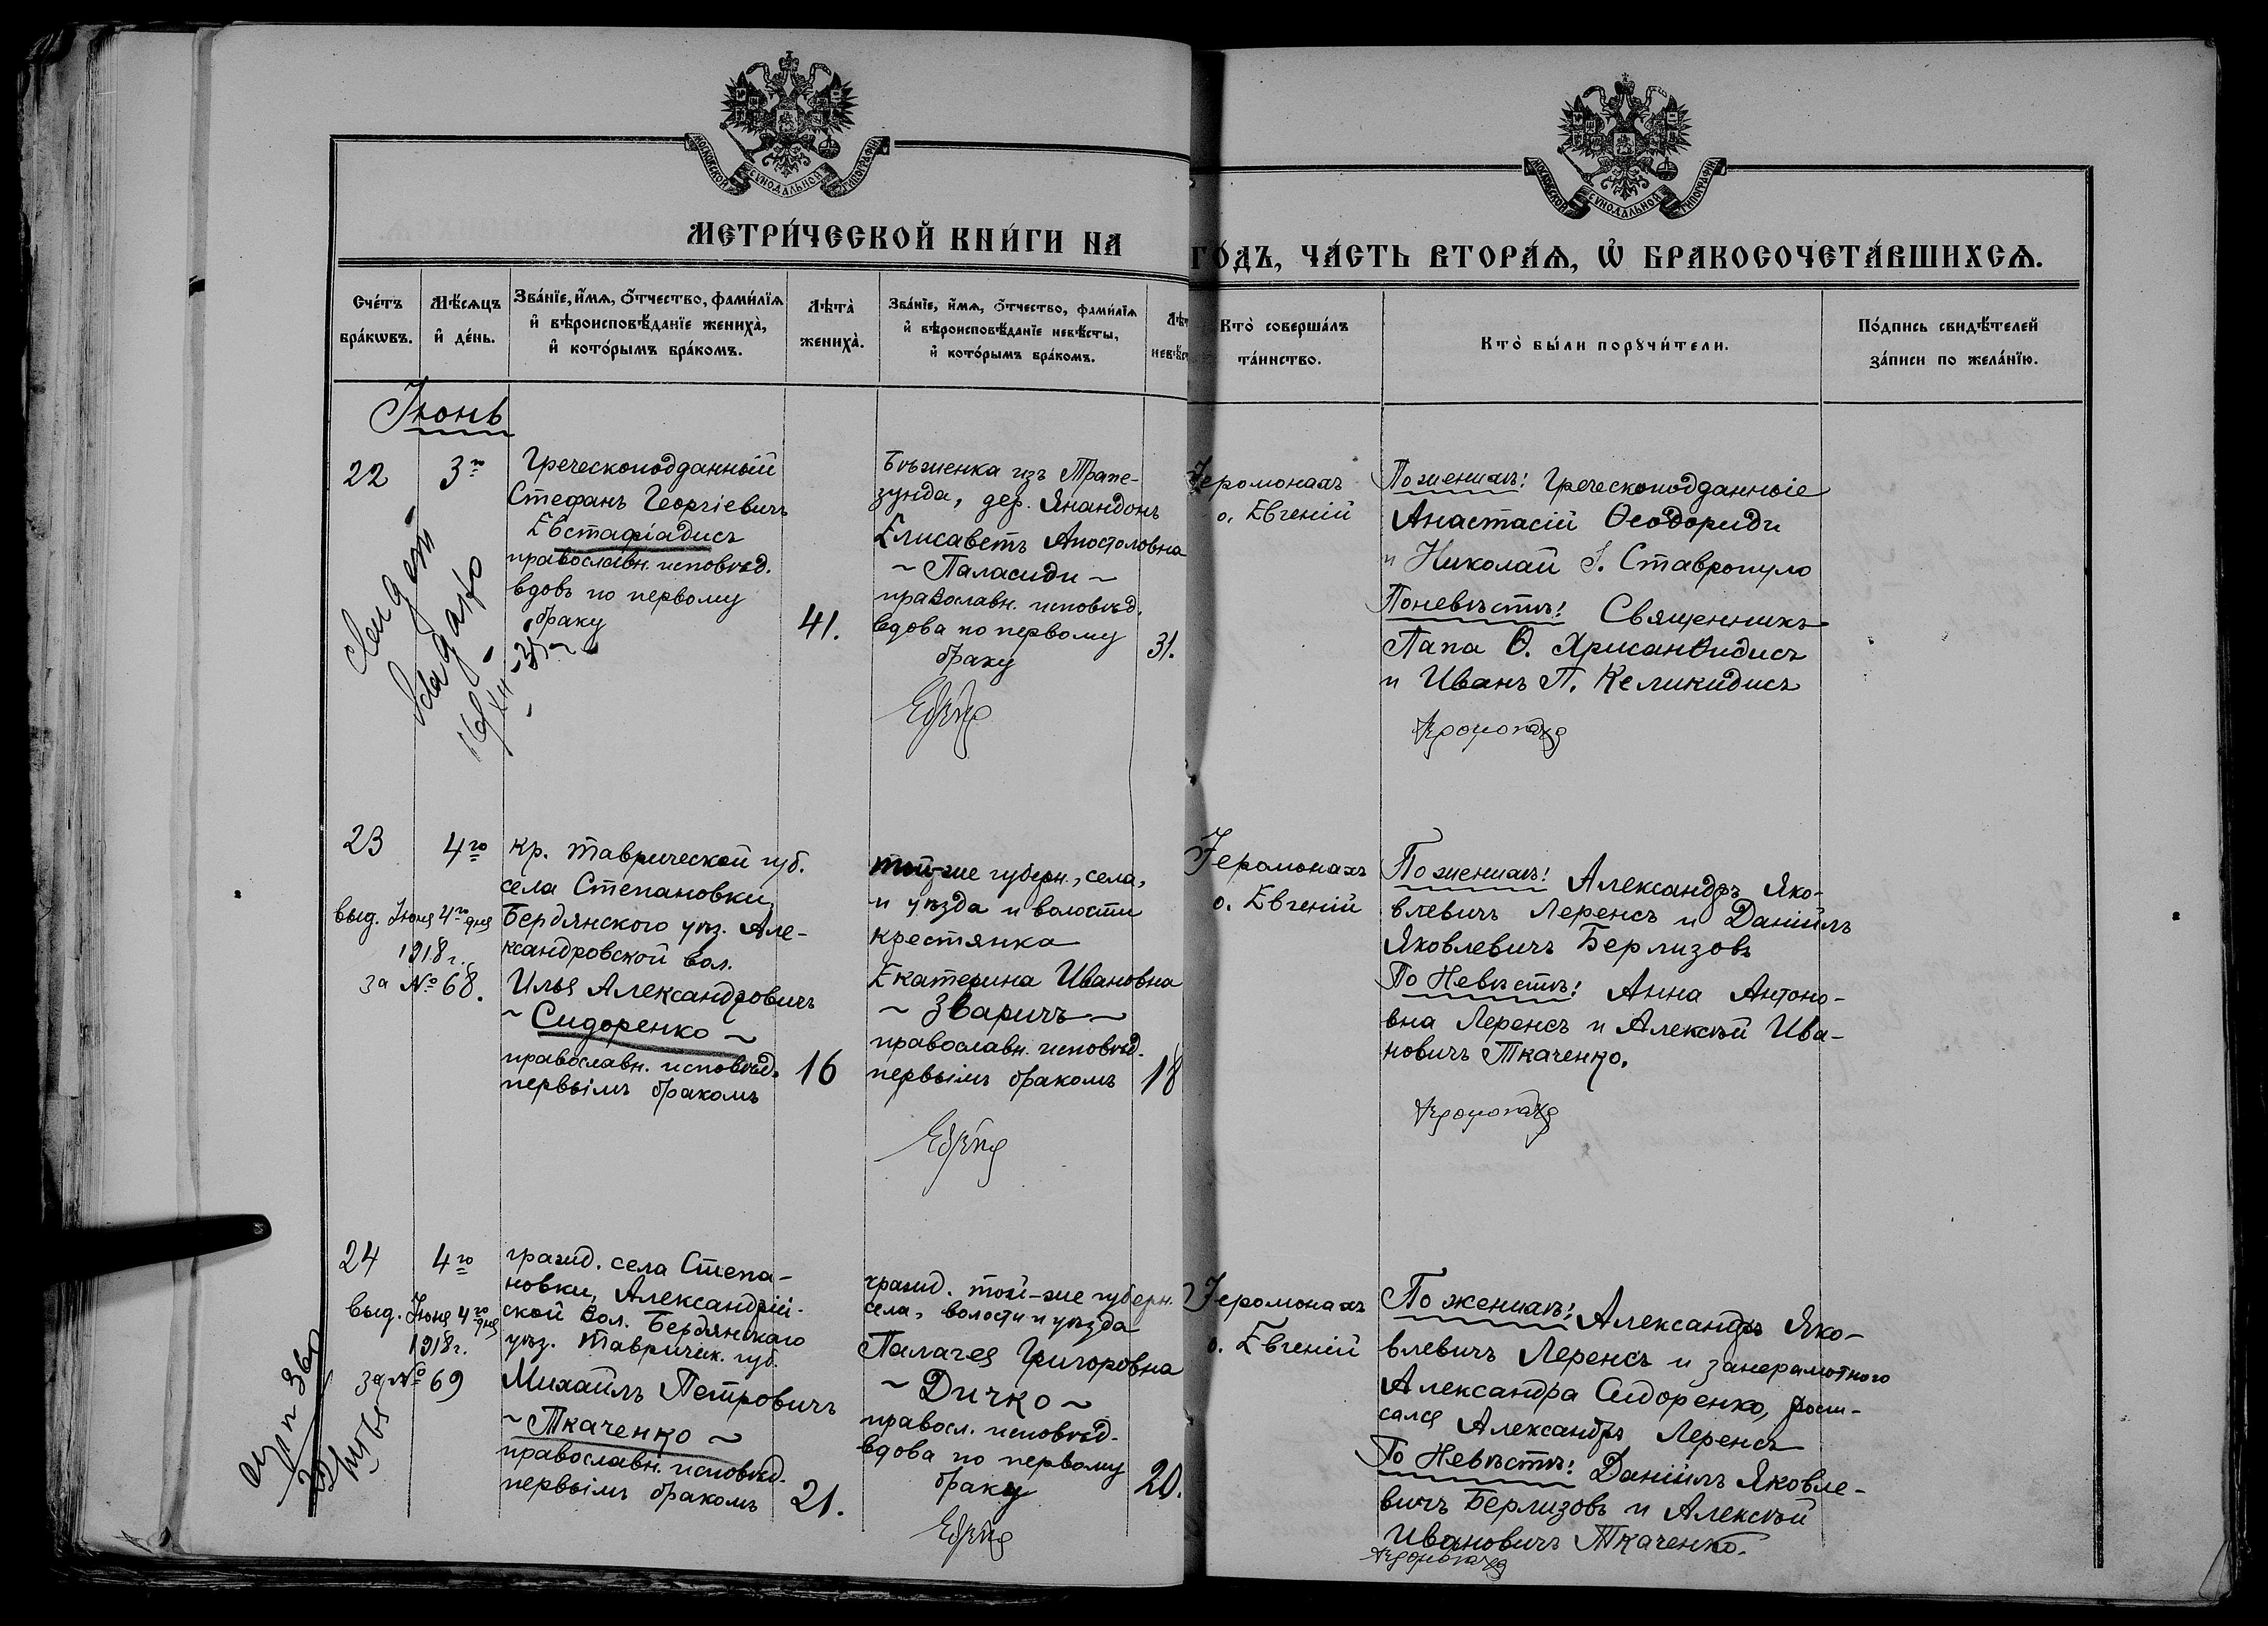 МОСКОВСКОЙ СѴНОДАЛЬНОЙ ТИПОГРАФІИ
МЕТРИ́ЧЕСКОЙ КНИ́ГИ НА
Сче́тъ бра́кωвъ.
Мѣ́сѧцъ и҆ де́нь.
Зва́нїе, и҆́мѧ, ѻ҆́тчество, фами́лїѧ
и҆ вѣроисповѣ́данїе жениха̀,
и҆ кото́рымъ бра́комъ.
Лѣта̀ жениха̀.
Зва́нїе, и҆́мѧ, ѻ҆́тчество, фами́лїѧ
и҆ вѣроисповѣ́данїе невѣ́сты,
и҆ кото́рымъ бра́комъ.
МОСКОВСКОЙ СѴНОДАЛЬНОЙ ТИПОГРАФІИ
ГО́ДЪ, ЧА́СТЬ ВТОРА́Ѧ, Ѡ҆ БРАКОСОЧЕТА́ВШИХСѦ.
Кто̀ соверша́лъ
та́инство.
Кто̀ бы́ли порꙋчи́тели.
По́дпись свидѣ́телей
за́писи по жела́нїю.
Іюнь
22
3го
Греческоподданный
Стефанъ Георгіевичъ
Евстафіадисъ
православн. исповѣд.
вдовъ по первому
браку
41.
Бѣженка изъ Трапе-
зунда, дер. Янандонъ
Елисаветъ Апостоловна
~ Паласиди ~
православн. исповѣд.
вдова по первому
браку
31.
Іеромонахъ
о. Евгеній
По женихѣ: Греческоподданные
Анастасій Ѳеодориди
и Николай І. Ставропуло
По невѣстѣ: Священникъ
Папа Ѳ. Хрисанѳидисъ
и Иванъ П. Келикидисъ
Іеромонахъ
23
4го
выд. Іюня 4го дня
1918 г.
за № 68.
кр. Таврической губ.
села Степановки
Бердянского уѣз. Але-
ксандровской вол.
Илья Александровичъ
~ Сидоренко ~
православн. исповѣд.
первымъ бракомъ
16
той-же губерн., села,
и уѣзда и волости
крестянка
Екатерина Ивановна
~ Зваричъ ~
православн. исповѣд.
первымъ бракомъ
18
Іеромонахъ
о. Евгеній
По женихѣ: Александръ Яко-
влевичъ Леренсъ и Даніилъ
Яковлевичъ Берлизовъ
По Невѣстѣ: Анна Антоно-
вна Леренсъ и Алексѣй Ива-
новичъ Ткаченко.
Іеромонахъ
24
4го
выд. Іюня 4го дня
1918 г.
за № 69
гражд. села Степа-
новки, Александрій-
ской вол. Бердянскаго
уѣз. Тавричек. губ.
Михаилъ Петровичъ
~ Ткаченко ~
православн. исповѣд.
первымъ бракомъ
21.
гражд. той-же губерн.
села, волости и уѣзда
Палагея Григоровна
~ Дичко ~
правосл. исповѣд.
вдова по первому
браку
20.
Іеромонахъ
о. Евгеній
По женихѣ: Александръ Яко-
влевичъ Леренсъ и занерамотного
Александра Сидоренко, роспи-
сался Александръ Леренсъ
По Невѣстѣ: Даніилъ Яковле-
вичъ Берлизовъ и Алексѣй
Ивановичъ Ткаченко.
Іеромонахъ